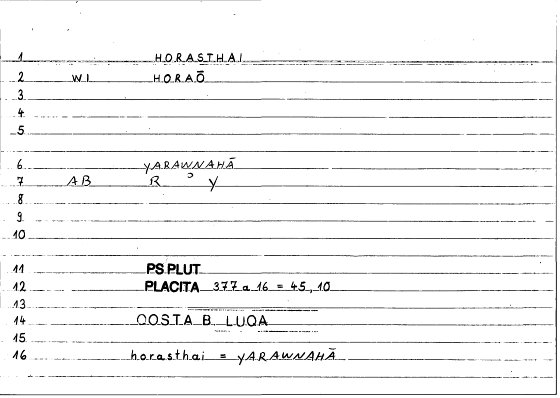 1 HORASTHAI
2 WI HORAŌ
3
4
5
6 yARAWNAHĀ
7 AB R ɔ y
8
9
10
11 PS.PLUT
12 PLACITA 377 a 16 = 45, 10
13
14 QOSTA B. LUQA
15
16 horasthai = yARAWNAHĀ